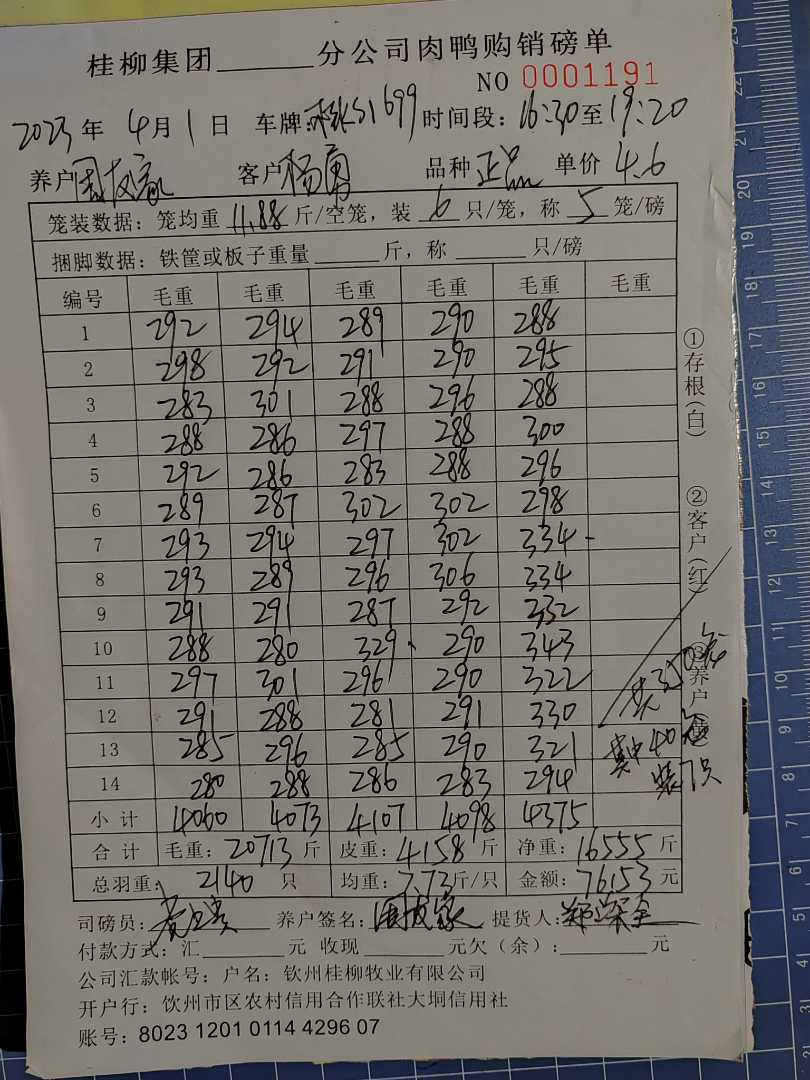 桂柳集团______分公司肉鸭购销磅单
NO 0001191
2023年 4月1日 车牌: S1699 时间段: 16:30至19:20
养户 周友家 客户 杨勇 品种 正品 单价 4.6
笼装数据: 笼均重 11.88 斤/空笼, 装 6 只/笼, 称 5 笼/磅
捆脚数据: 铁筐或板子重量______斤, 称______只/磅
编号 毛重 毛重 毛重 毛重 毛重 毛重
1 292 294 289 290 288
2 298 292 291 290 295
3 283 301 288 296 288
4 288 286 297 288 300
5 292 286 283 288 296
6 289 287 302 302 298
7 293 294 297 302 334
8 293 289 296 306 334
9 291 291 287 292 332
10 288 280 329 290 343
11 297 301 296 290 322
12 291 288 281 291 330
13 285 296 285 290 321
14 280 288 286 283 294
小计 4060 4073 4107 4098 4375
合计 毛重: 20713 斤 皮重: 4158 斤 净重: 16555 斤
总羽重: 2140 只 均重: 7.73 斤/只 金额: 76153 元
司磅员: 养户签名: 周友家 提货人: 郑深全
付款方式: 汇______元 收现______元欠(余): ______元
公司汇款帐号: 户名: 钦州桂柳牧业有限公司
开户行: 饮州市区农村信用合作联社大垌信用社
账号: 8023 1201 0114 4296 07
①存根(白) ②客户(红) ③养户
共350笼
其中40笼
装7只